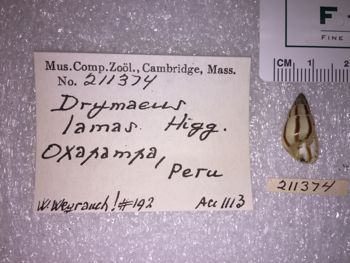 Mus.Comp.Zoöl., Cambridge, Mass.
No. 211374
Drymaeus
lamas Higg.
Oxapampa,
Peru
W. Weyrauch! #192 Acc 1113
F
FINE
CM 1 2
211374